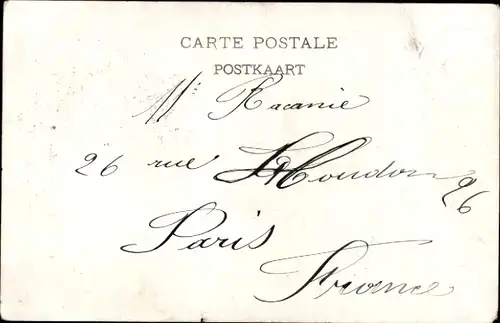 CARTE POSTALE
POSTKAART
Mr Racanie
26 rue Houdon 26
Paris
France